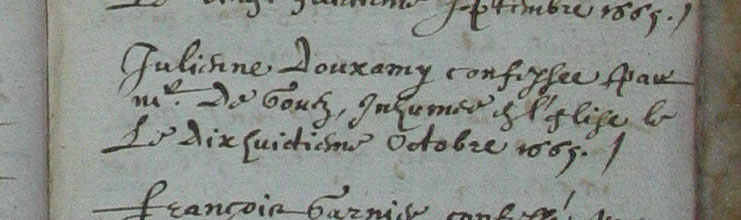 huictiesme septembre 1665.
Julienne Douxamy confessee par
mr. De Goutz, Inhumee en l'eglise le
Le dixhuictiesme Octobre 1665.
François Garnier confessé